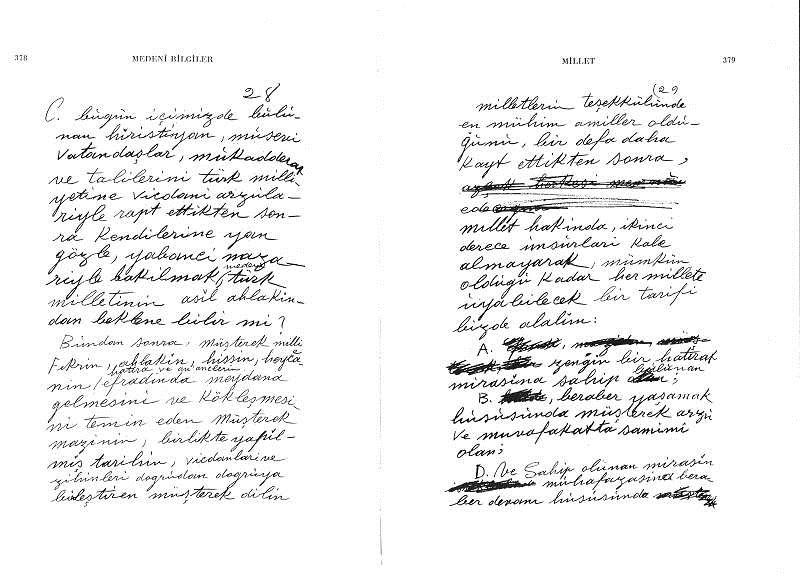 378
MEDENİ BİLGİLER
28
C. bügün içimizde bülü-
nan hıristiyan, müsevi
vatandaşlar, mükadderat
ve talilerini türk milli-
yetine vicdani arzüla-
riyle rapt ettikten son-
ra kendilerine yan
gözle, yabanci naza-
riyle bakilmak, medeni türk
milletinin asil ahlakin-
dan beklene bilir mi?
Bündan sonra, müşterek milli
Fikrin, ahlakin, hissin, heyca-
hatira ve an'anelerin
nin efradinda meydana
gelmesini ve kökleşmesi
ni temin eden müşterek
mazinin, birlikte yapil-
miş tarihin, vicdanlari ve
zihinleri doğrudan doğruya
birleştiren müşterek dilin
MİLLET
379
(29
milletlerin teşekkülünde
en mühim amiller oldü-
ğünü, bir defa daha
kayt ettikten sonra,
ede
millet hakinda, ikinci
derece ünsürlari kale
almayarak, mümkün
oldüğü kadar her millete
üyabilecek bir tarifi
bizde alalim:
A. zengin bir hatirat
mirasina sahip bülünan;
B. beraber yaşamak
hüsüsünda müşterek arzü
ve muvafakatta samimi
olan;
D. Ve sahip olünan mirasin
mühafazasina bera-
ber devam hüsüsünda